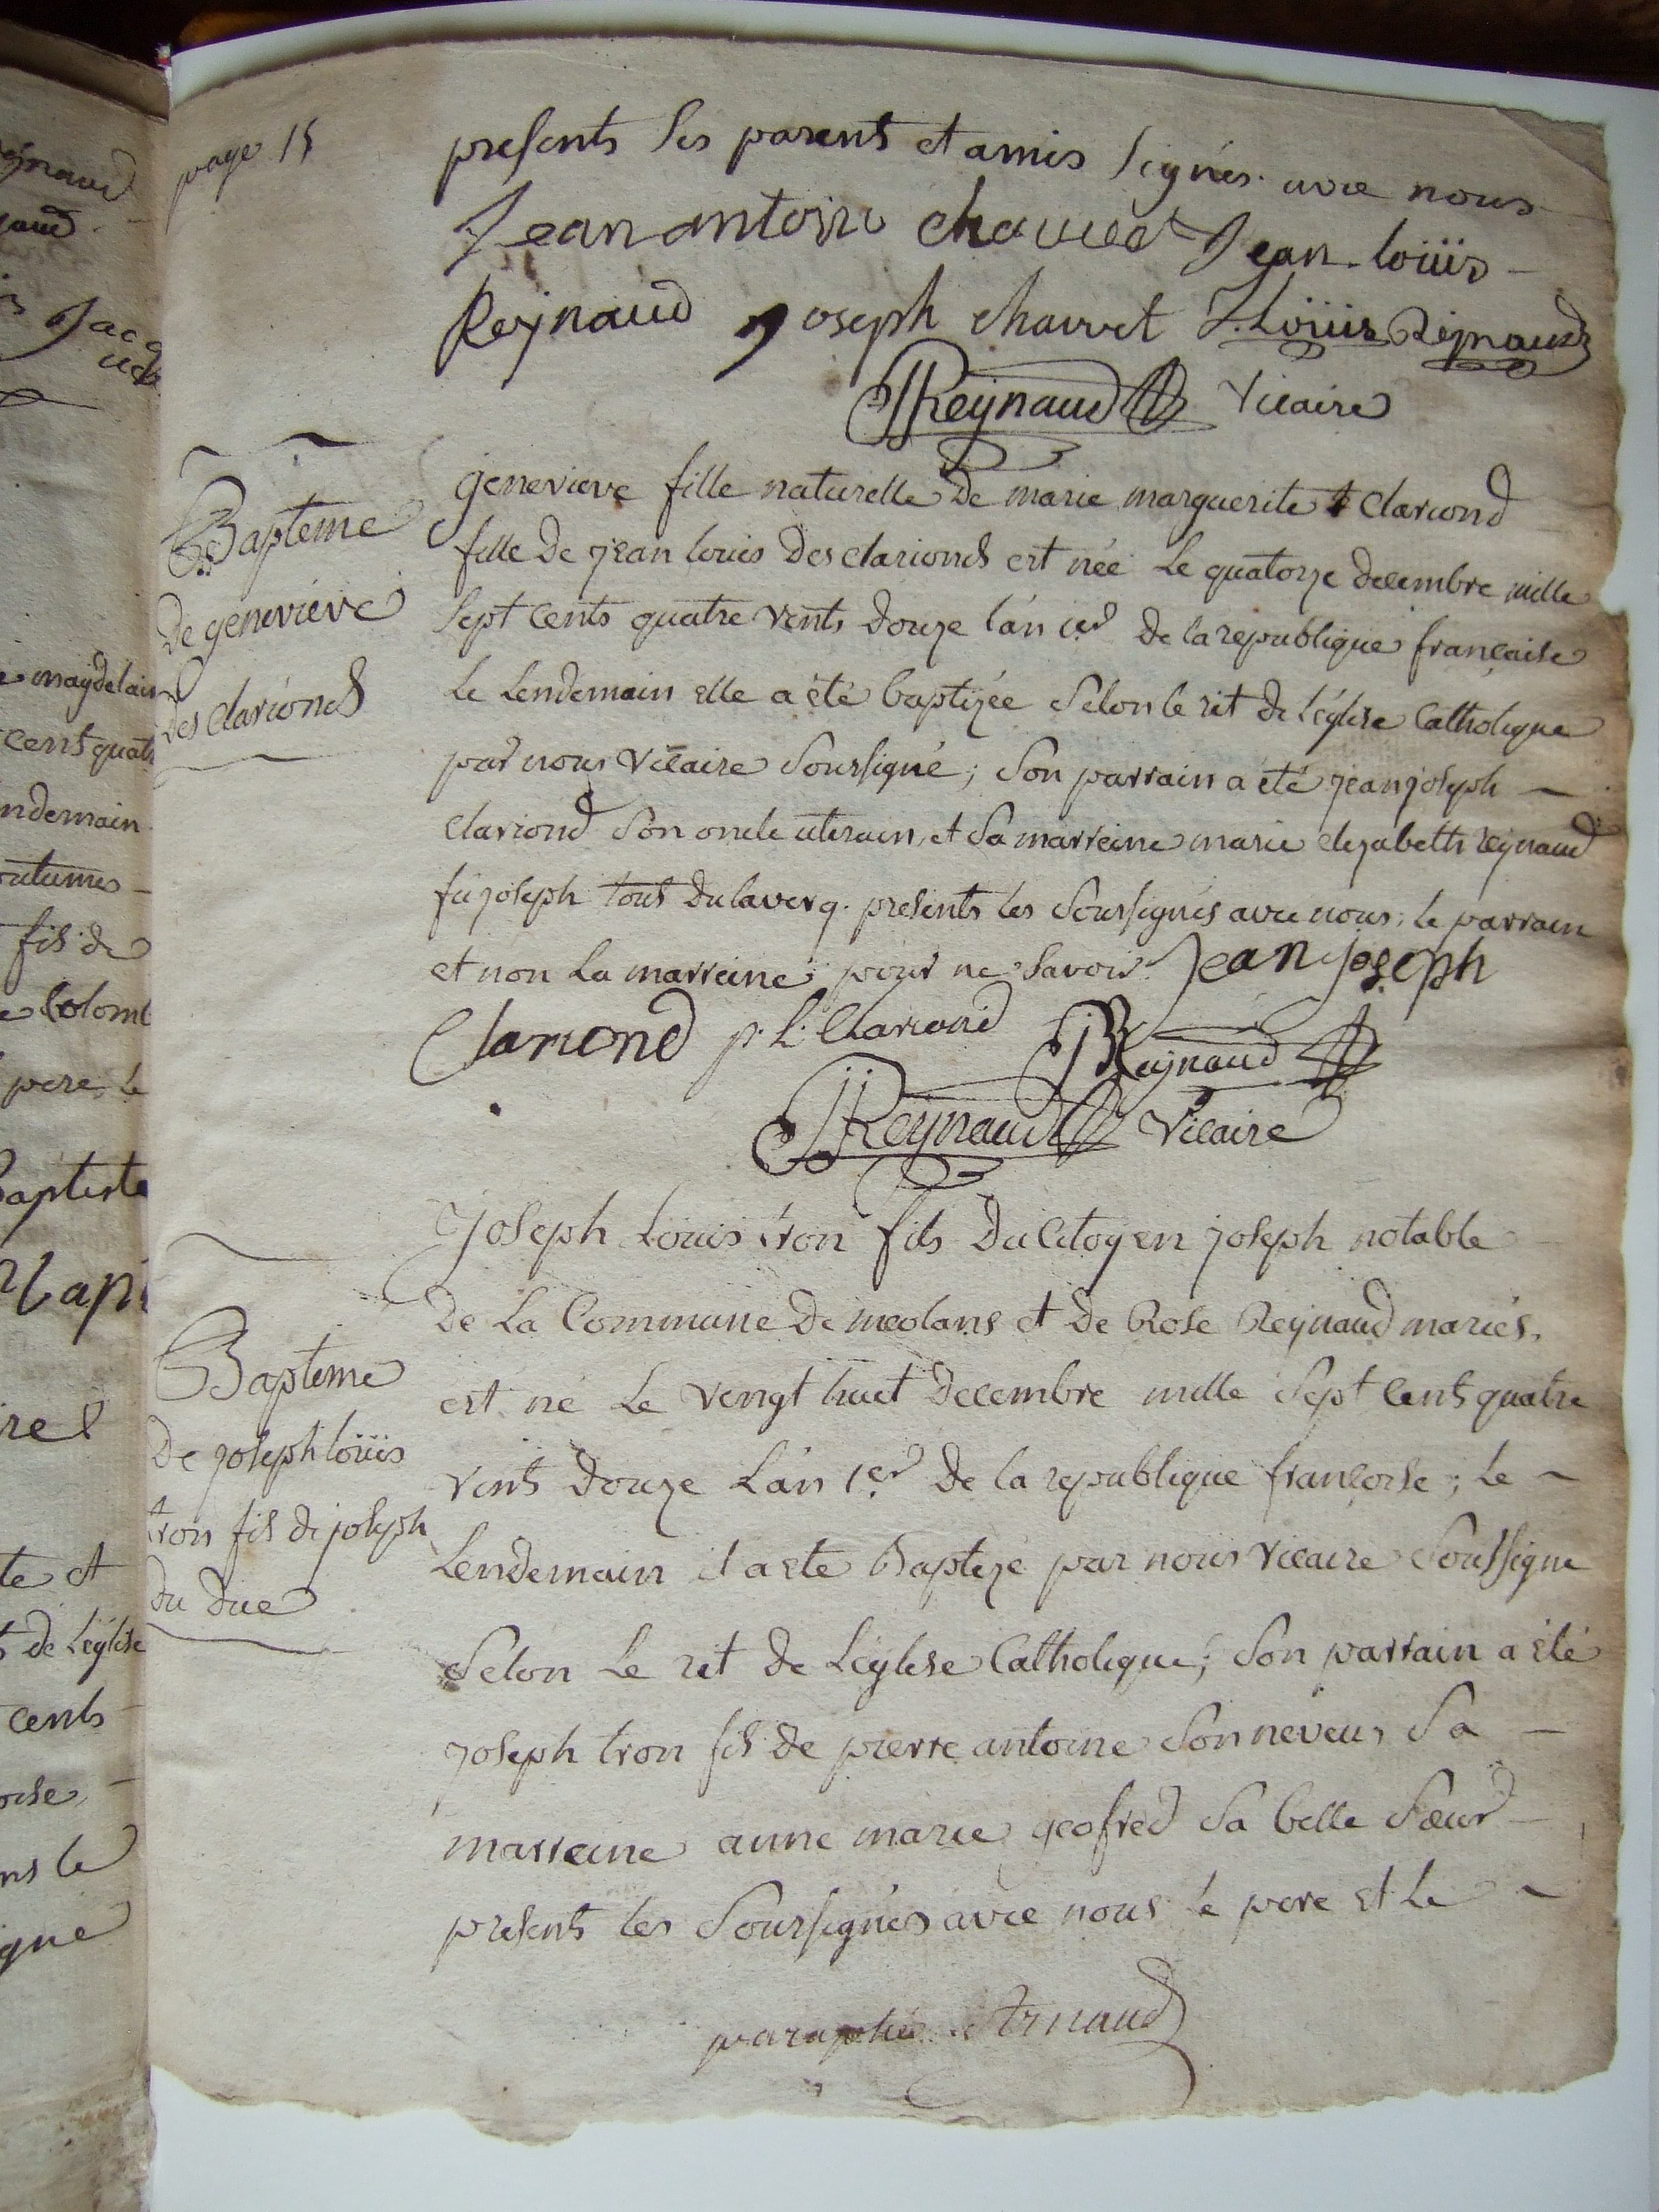 page 15
presents ses parents et amis signés avec nous
Jean antoine chauvet Jean loüis
Reynaud joseph chauvet J. Loüis Reynaud
JJReynaud Vicaire
Bapteme
de geneviéve
des clarionds
genevieve fille naturelle de marie marguerite clariond
fille de jean louis des clarionds est née le quatorze decembre mille
sept cents quatre vents douze l'an 1er de la republique française
le lendemain elle a été baptizée selon le rit de l'église Catholique
par nous Vicaire soussigné; son parrain a été jean joseph
clariond son oncle uterain, et sa marreine marie elizabeth reynaud
fu joseph tous du laverq. presents les soussignés avec nous; le parrain
et non la marreine pour ne savoir. Jean joseph
Clariond p. l. Clariond JBReynaud
JJReynaud Vicaire
Bapteme
de joseph loüis
tron fils de joseph
du duc
Joseph Louis tron fils du Citoyen joseph notable
de la Commune de meolans et de Rose Reynaud mariés,
est né le vengt huit decembre mille sept cents quatre
vents douze l'an 1er de la republique françoise; le
lendemain il a ete baptizé par nous vicaire soussigne
selon le rit de l'eglise Catholique; son parrain a été
joseph tron fils de pierre antoine son neveu, sa
marreine anne marie geofred sa belle sœur
presents les soussignés avec nous le pere et le
paraphé Arnaud